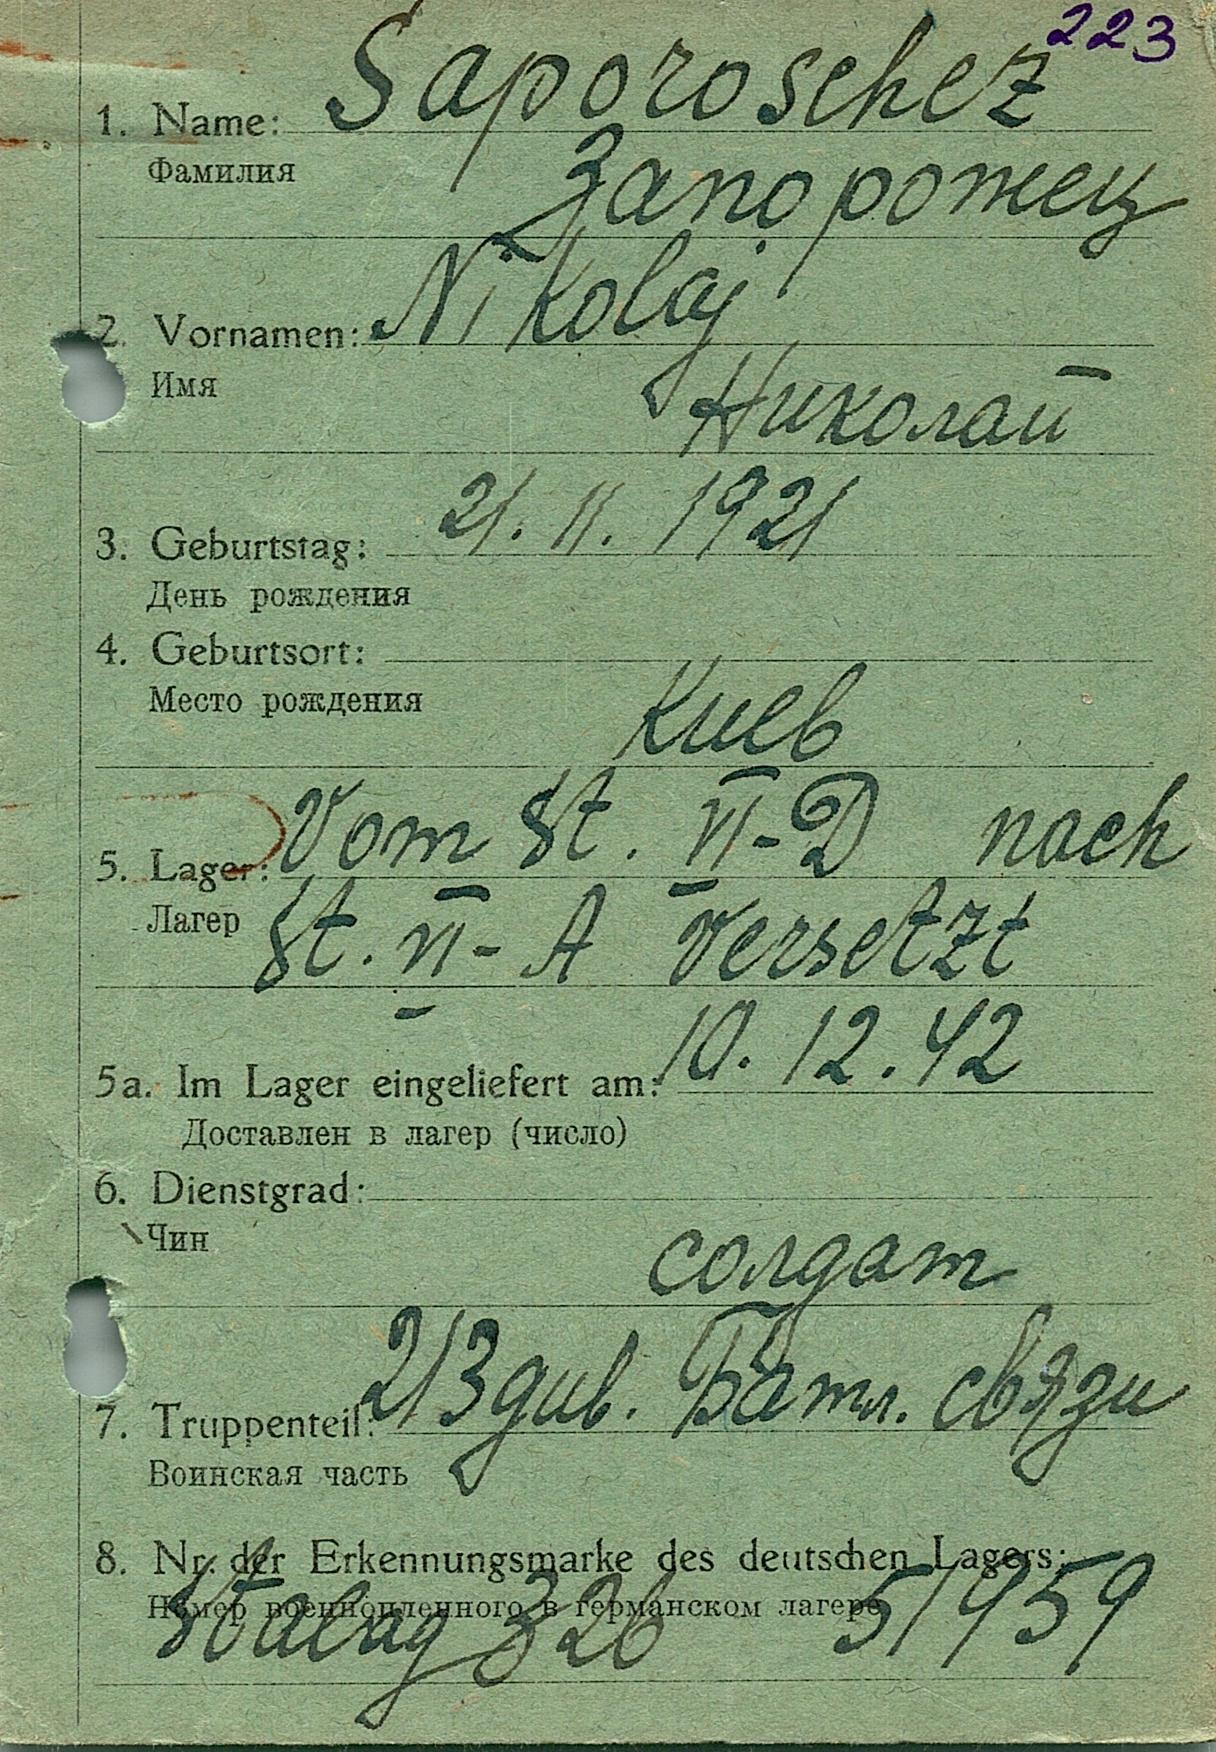 223
1. Name: Saporoschez
Фамилия
Запорожец
2. Vornamen: Nikolaj
Имя
Николай
3. Geburtstag: 21. 11. 1921
День рождения
4. Geburtsort:
Место рождения
Киев
5. Lager: Vom St. VI-D nach
Лагер
St. VI-A versetzt
5a. Im Lager eingeliefert am: 10.12.42
Доставлен в лагер (число)
6. Dienstgrad:
Чин
солдат
7. Truppenteil: 213 див. Батл. связи
Воинская часть
8. Nr. der Erkennungsmarke des deutschen Lagers:
Номер военнопленного в германском лагере
Stalag 326 51959